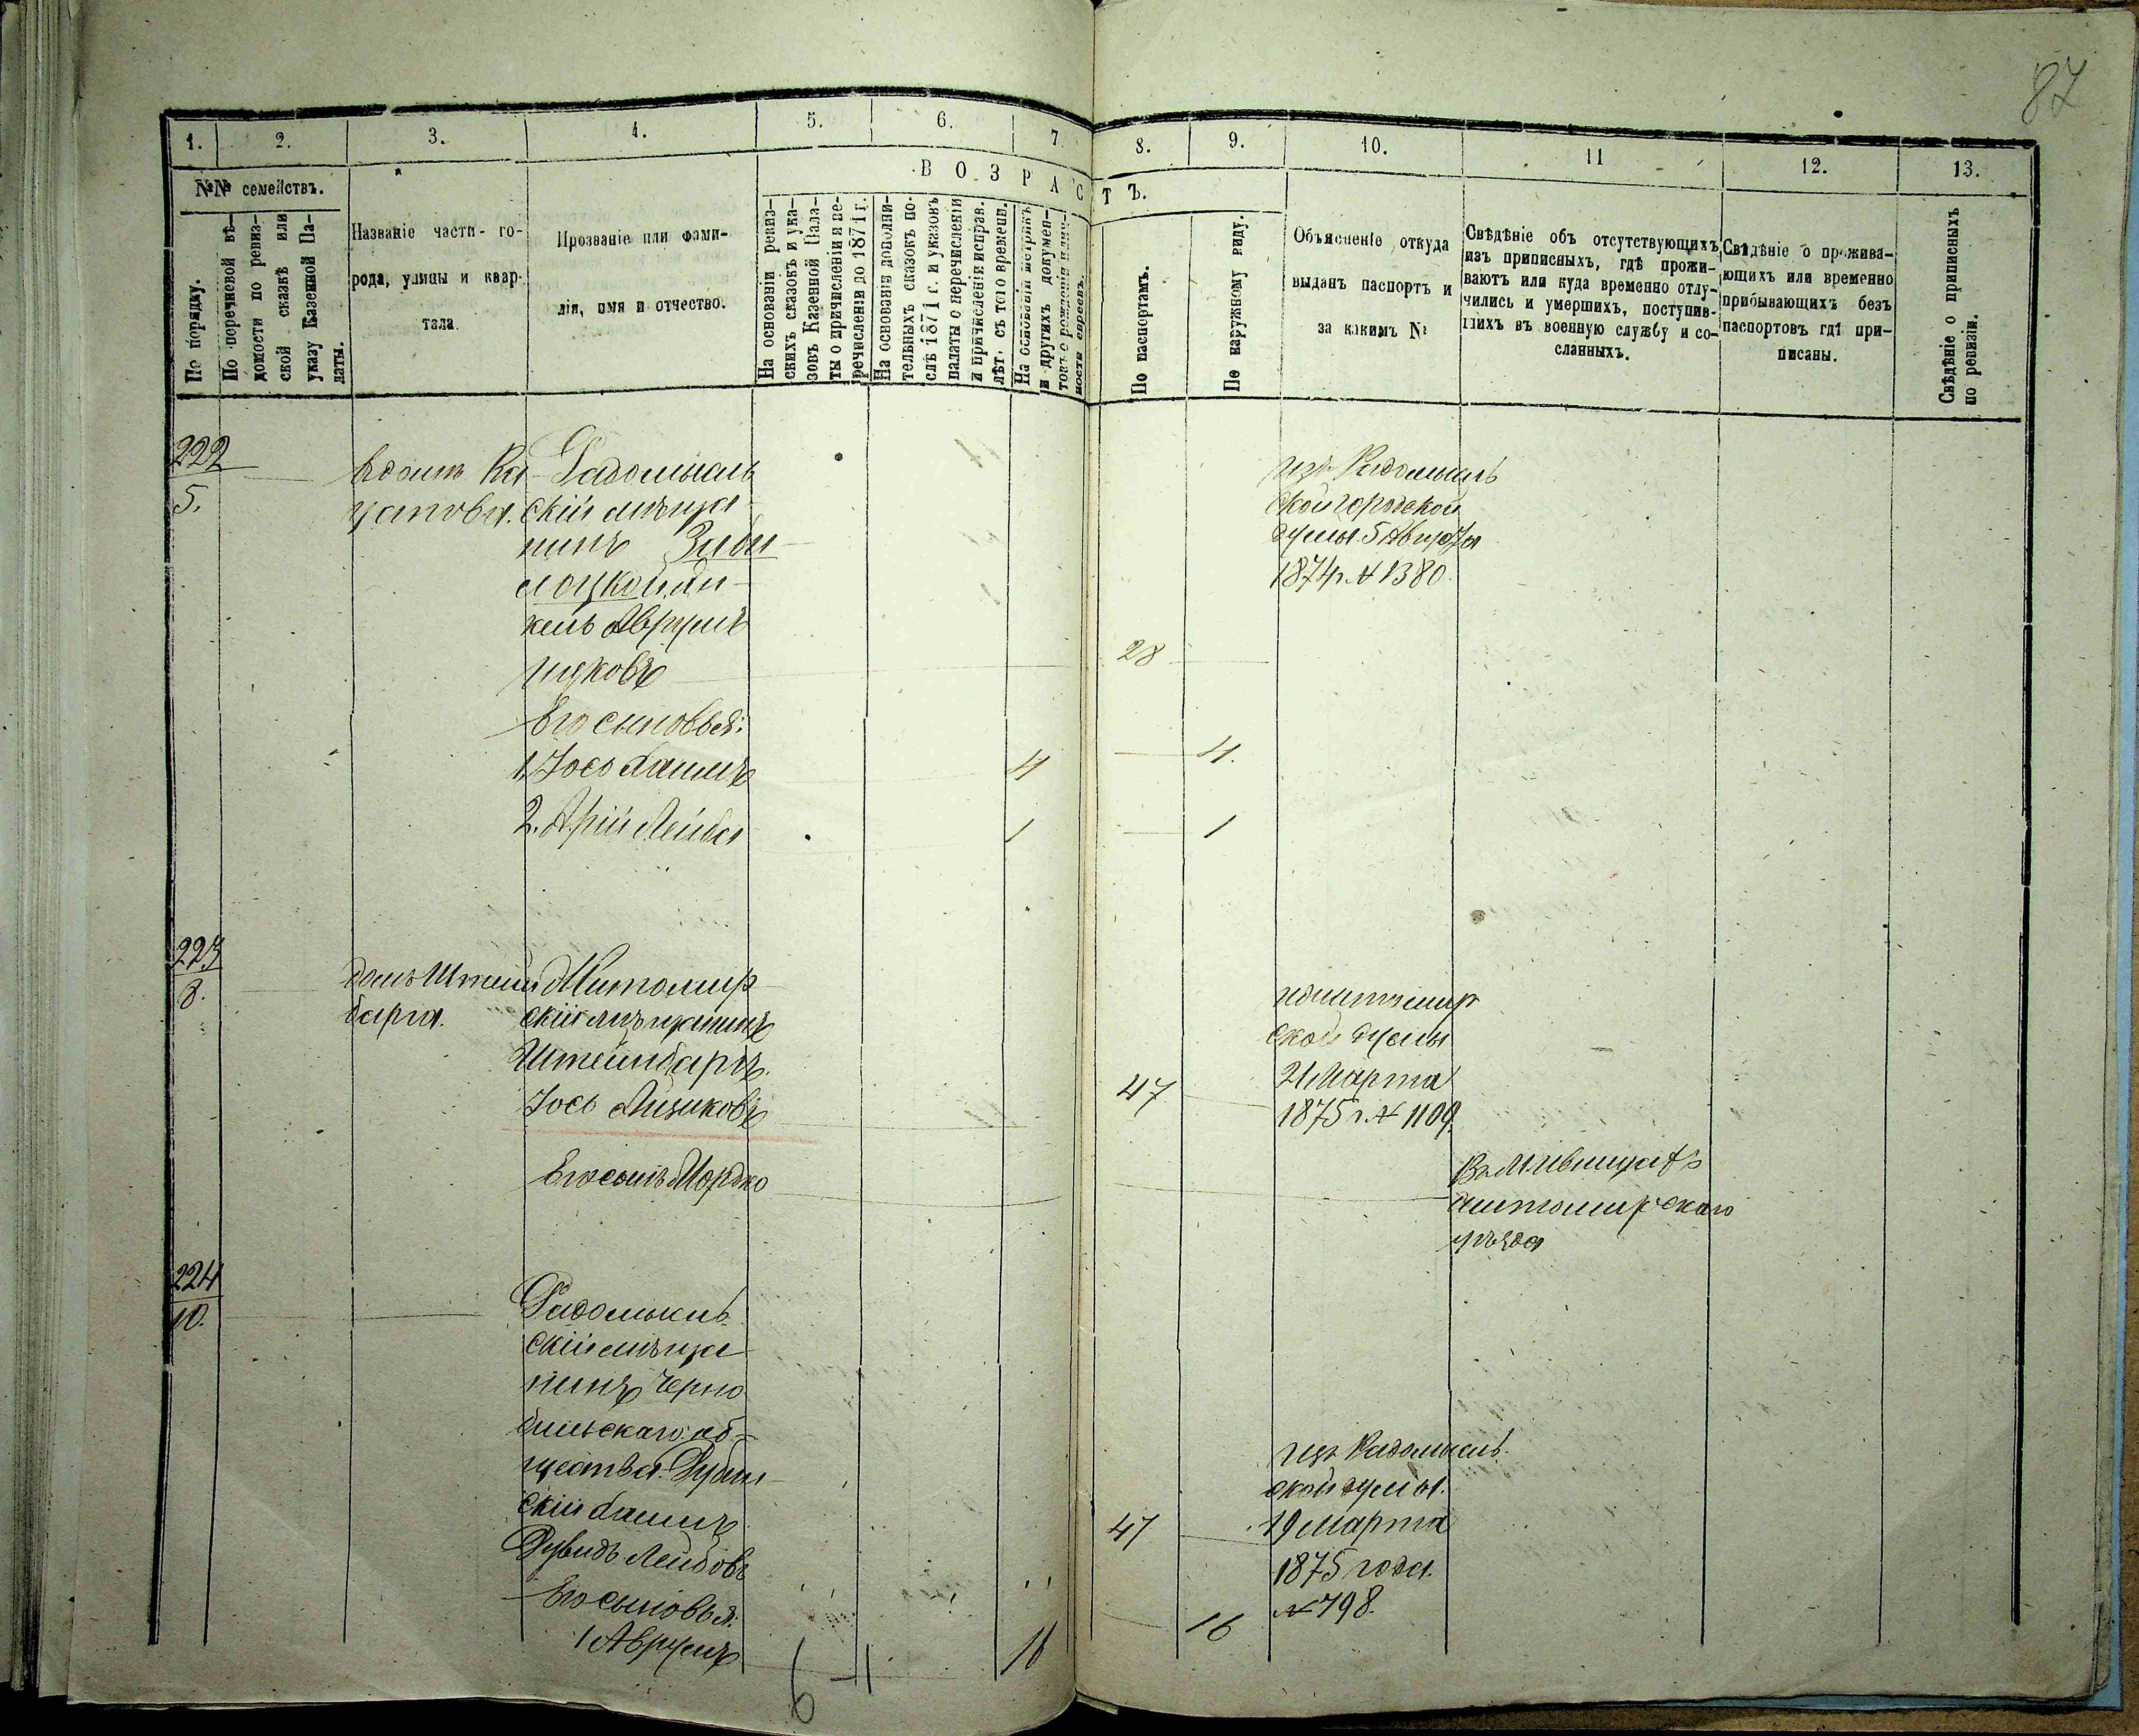 87
1. 2. 3. 4. 5. 6. 7. 8. 9. 10. 11 12. 13.
№№ семействъ.
По порядку.
По перечневой вѣ-
домости по ревиз-
ской сказкѣ или
указу Казенной Па-
латы.
Названіе части-го-
рода, улицы и квар-
тала.
Прозваніе или фами-
лія, имя и отчество.
ВОЗРАСТЪ.
На основаніи ревиз-
скихъ сказокъ и ука-
зовъ Казенной Пала-
ты о причисленіи и пе-
речисленіи до 1871 г.
На основаніи дополни-
тельныхъ сказокъ по-
слѣ 1871 г. и указовъ
палаты о перечисленіи
и причисленіи исправ.
лѣт. съ того времени.
На основаніи метрикъ
и другихъ докумен-
товъ о рожденіи
евреевъ.
По паспортамъ.
По наружному виду.
Объясненіе откуда
выданъ паспортъ и
за какимъ №
Свѣдѣніе объ отсутствующихъ
изъ приписныхъ, гдѣ прожи-
ваютъ или куда временно отлу-
чились и умершихъ, поступив-
шихъ въ военную службу и со-
сланныхъ.
Свѣдѣніе о прожива-
ющихъ или временно
прибывающихъ безъ
паспортовъ гдѣ при-
писаны.
Свѣдѣніе о приписныхъ
по ревизіи.
222
5.
Радомысль
скій мѣща-
нинъ Заби-
лоцкой
Аврумъ
Ицковъ 28
Его сыновья:
1. Іось 4 4.
2. Арій Лейба 1 1
изъ Радомысль
ской городской
думы 5 Августа
1874 г. № 1380.
223
8.
домъ Штейн
барга.
Житомир
скій мѣщанинъ
Штейнбаргъ
Іось Айзиковъ 47
Его сынъ Мордко
Житомир
ской думы
21 Марта
1875 г. № 1109.
Житомирскаго
уѣзда
224
10.
Радомысль
скій мѣща
нинъ Черно
быльскаго об-
щества Дубин
скій
Дувидъ Лейбовъ 47
Его сыновья:
1 Аврумъ 16 16
изъ Радомысль
ской думы.
19 Марта
1875 года.
№ 798.
6 1